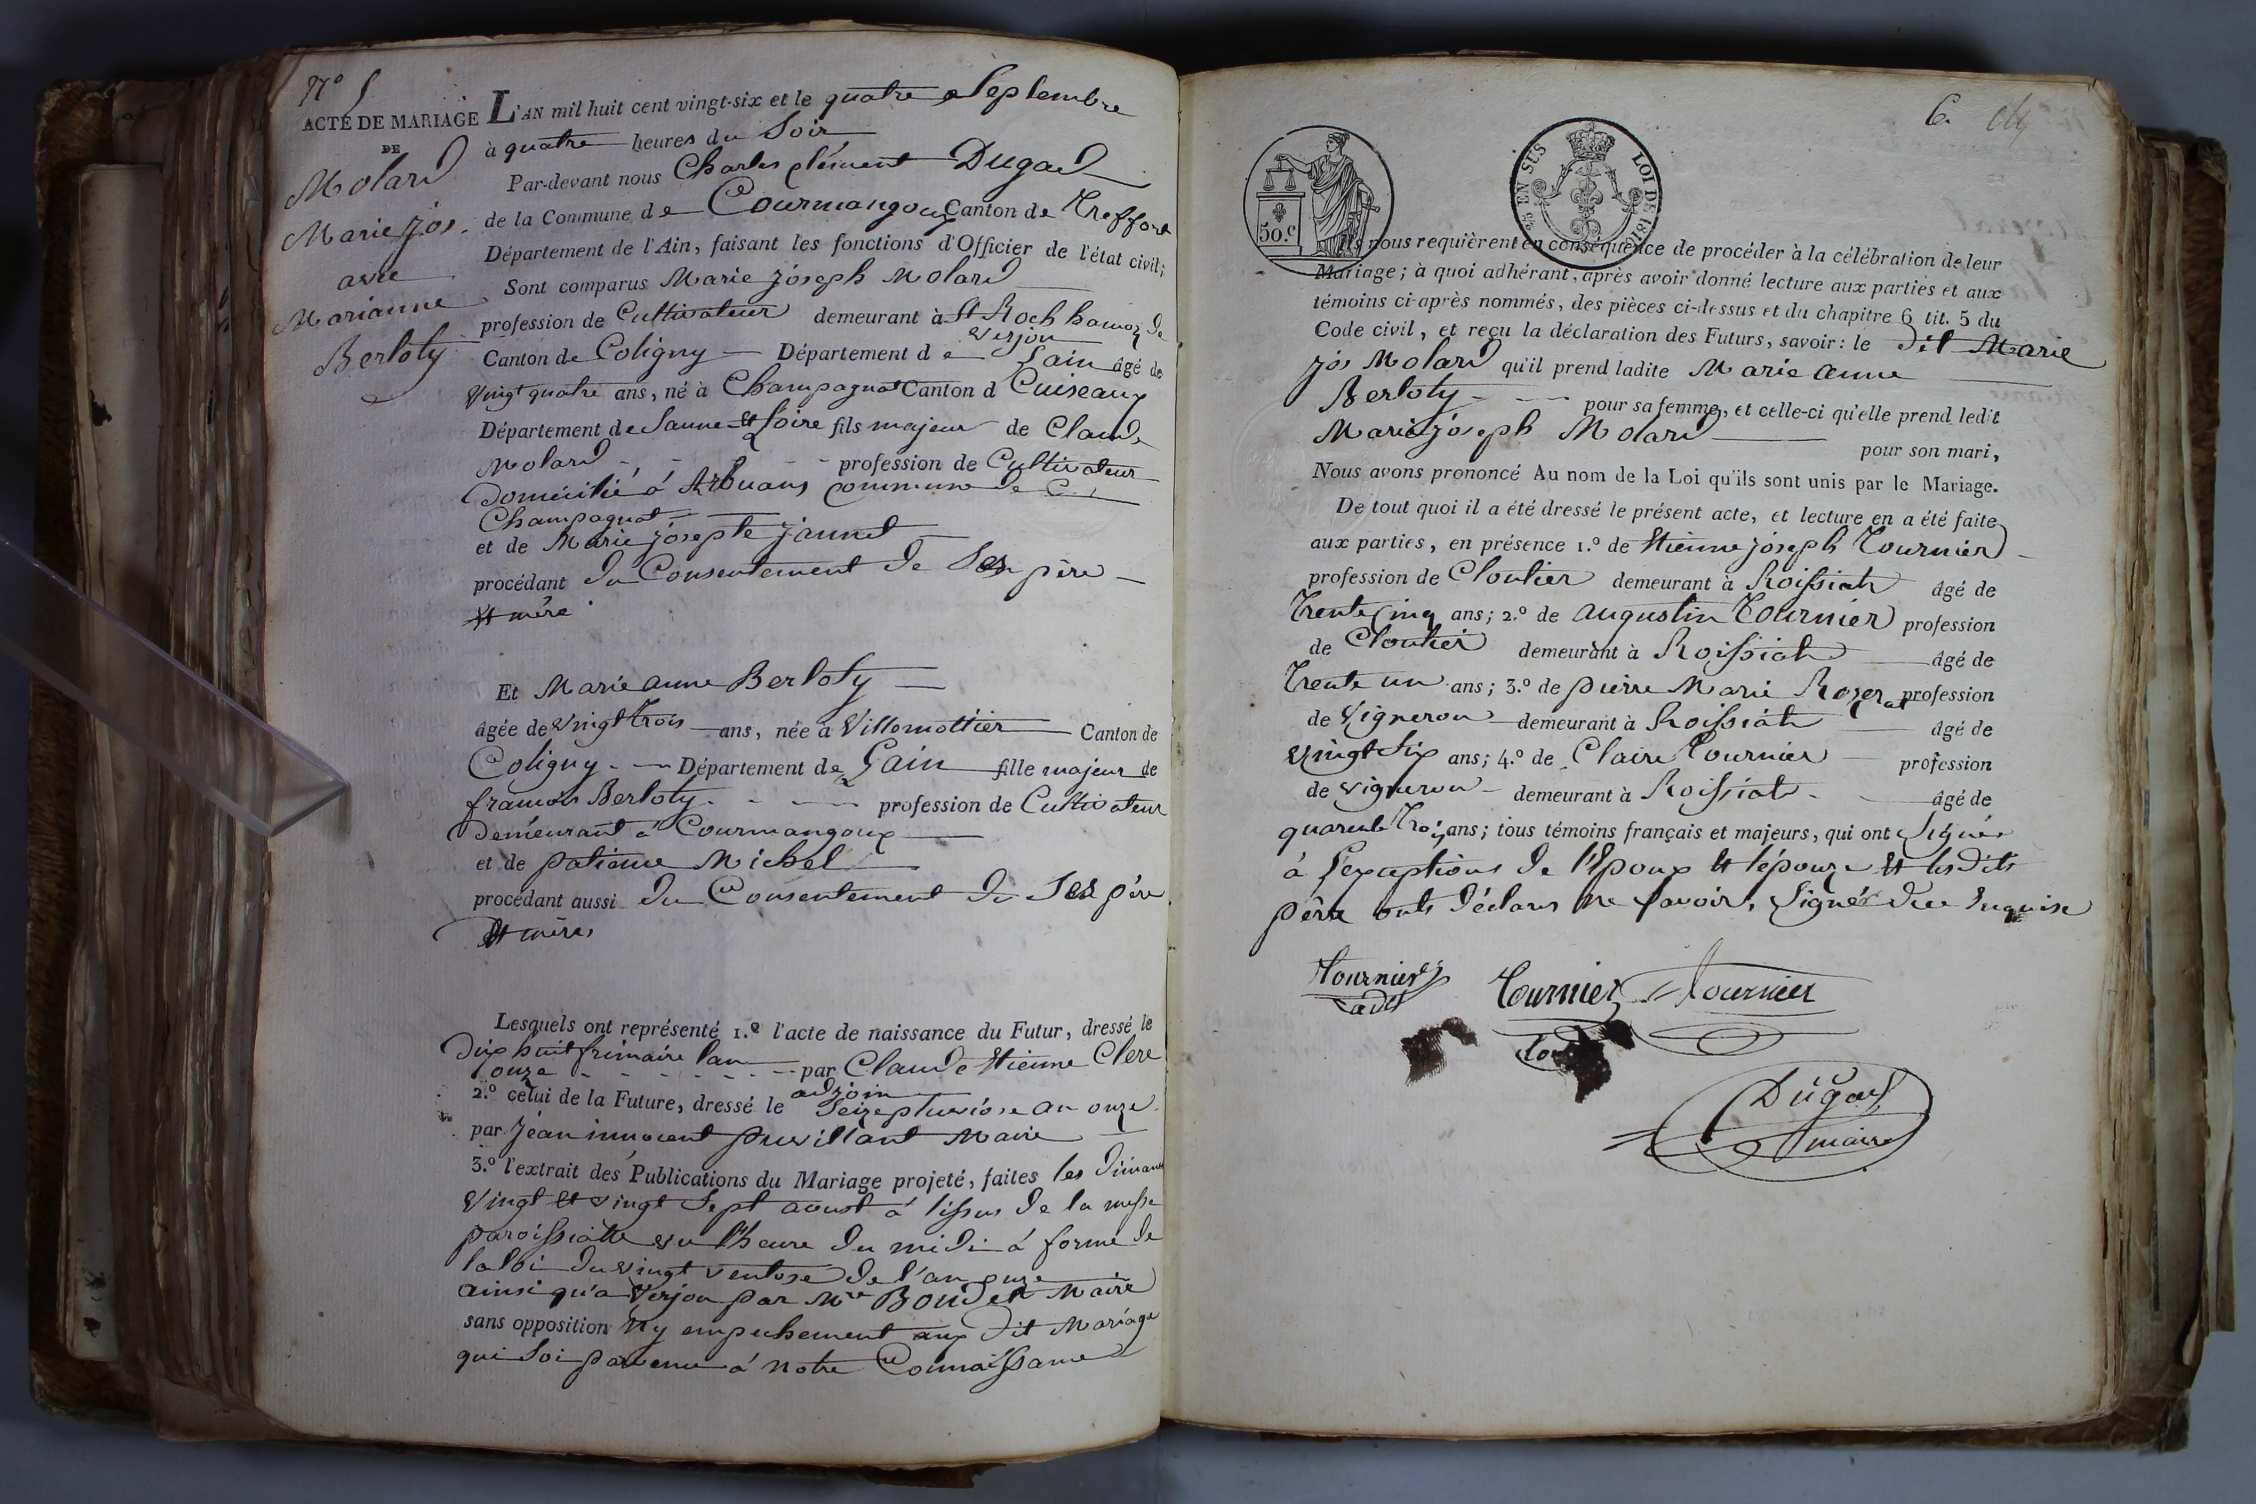 N° 5
ACTE DE MARIAGE
DE
Molard
Marie Jos.
avec
Marianne
Berloty
L'AN mil huit cent vingt-six et le quatre Septembre
à quatre heures du Soir
Par-devant nous Charles Clément Dugad
de la Commune de Courmangoux Canton de Treffort
Département de l'Ain, faisant les fonctions d'Officier de l'état civil;
Sont comparus Marie Joseph Molard
profession de Cultivateur demeurant à St Roch hamoz de
Verjon
Canton de Coligny Département de Lain âgé de
Vingt quatre ans, né à Champagnat Canton d Cuiseaux
Département de Saune et Loire fils majeur de Claude
Molard profession de Cultivateur
Domicilié á Arbuans Commune de
Champagnat
et de Marie Josepte Jaunet
procédant du Consentement de Ses père
et mère
Et Marie anne Berloty
âgée de vingt trois ans, née à Villemottier Canton de
Coligny Département de Lain fille majeur de
francois Berloty profession de Cultivateur
Demeurant á Courmangoux
et de patienne Michel
procédant aussi du Consentement de Ses père
et mère
Lesquels ont représenté 1.º l'acte de naissance du Futur, dressé le
Dix huit frimaire lan
onze par Claude Etienne Clerc
adjoin
2.º celui de la Future, dressé le Seize pluviôse an onze
par Jean innocent puvillant Maire
3.º l'extrait des Publications du Mariage projeté, faites les dimanc
Vingt et vingt Sept aoust á lissus de la messe
paroissialle vu l'heure du midi á forme de
la loi du vingt ventose de l'an onze
ainsi qu'a Verjon par Mr Bouder Maire
sans opposition Ny empechement aux dit Mariage
qui Soi parvenu á notre Connaissance
6.
50.c
25 EN SUS
LOI DE 1816
Ils nous requièrent en conséquence de procéder à la célébration de leur
Mariage; à quoi adhérant, après avoir donné lecture aux parties et aux
témoins ci-après nommés, des pièces ci-dessus et du chapitre 6 tit. 5 du
Code civil, et reçu la déclaration des Futurs, savoir: le dit Marie
Jos Molard qu'il prend ladite Marie anne
Berloty pour sa femme, et celle-ci qu'elle prend ledit
Marie Joseph Molard pour son mari,
Nous avons prononcé Au nom de la Loi qu'ils sont unis par le Mariage.
De tout quoi il a été dressé le présent acte, et lecture en a été faite
aux parties, en présence 1.º de Etienne Joseph Tournier
profession de Cloutier demeurant à Roissiat âgé de
Trente Cinq ans; 2.º de augustin Tournier profession
de Cloutier demeurant à Roissiat âgé de
Trente un ans; 3.º de pierre Marie Rozerat profession
de Vigneron demeurant à Roissiat âgé de
Vingt Six ans; 4.º de Claire Tournier profession
de vigneron demeurant à Roissiat âgé de
quarente Trois ans; tous témoins français et majeurs, qui ont Signée
á l'exceptions de l'Epoux et l'épouze et lesdits
père onts déclaré ne Savoir, Signé de ce Enquise
Tournier
cadet
Tournier
Tournier
Dugad
maire